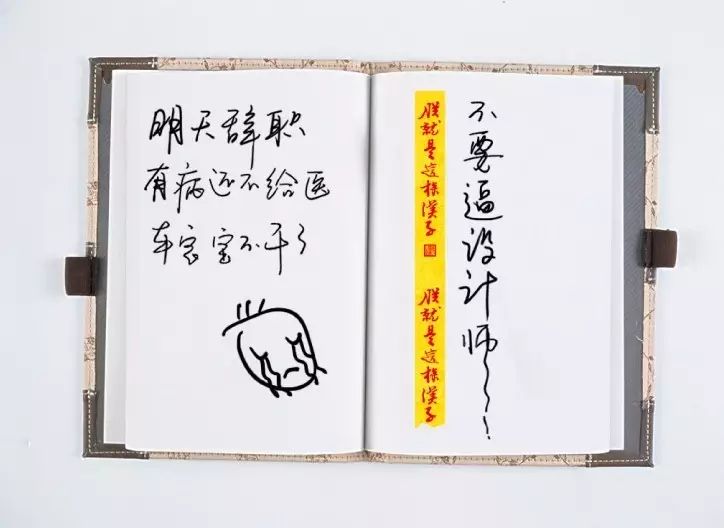 明天辞职
有病还不给医
本宝宝不干了
朕就是这样汉子
朕就是这样汉子
不要逼设计师~~~!